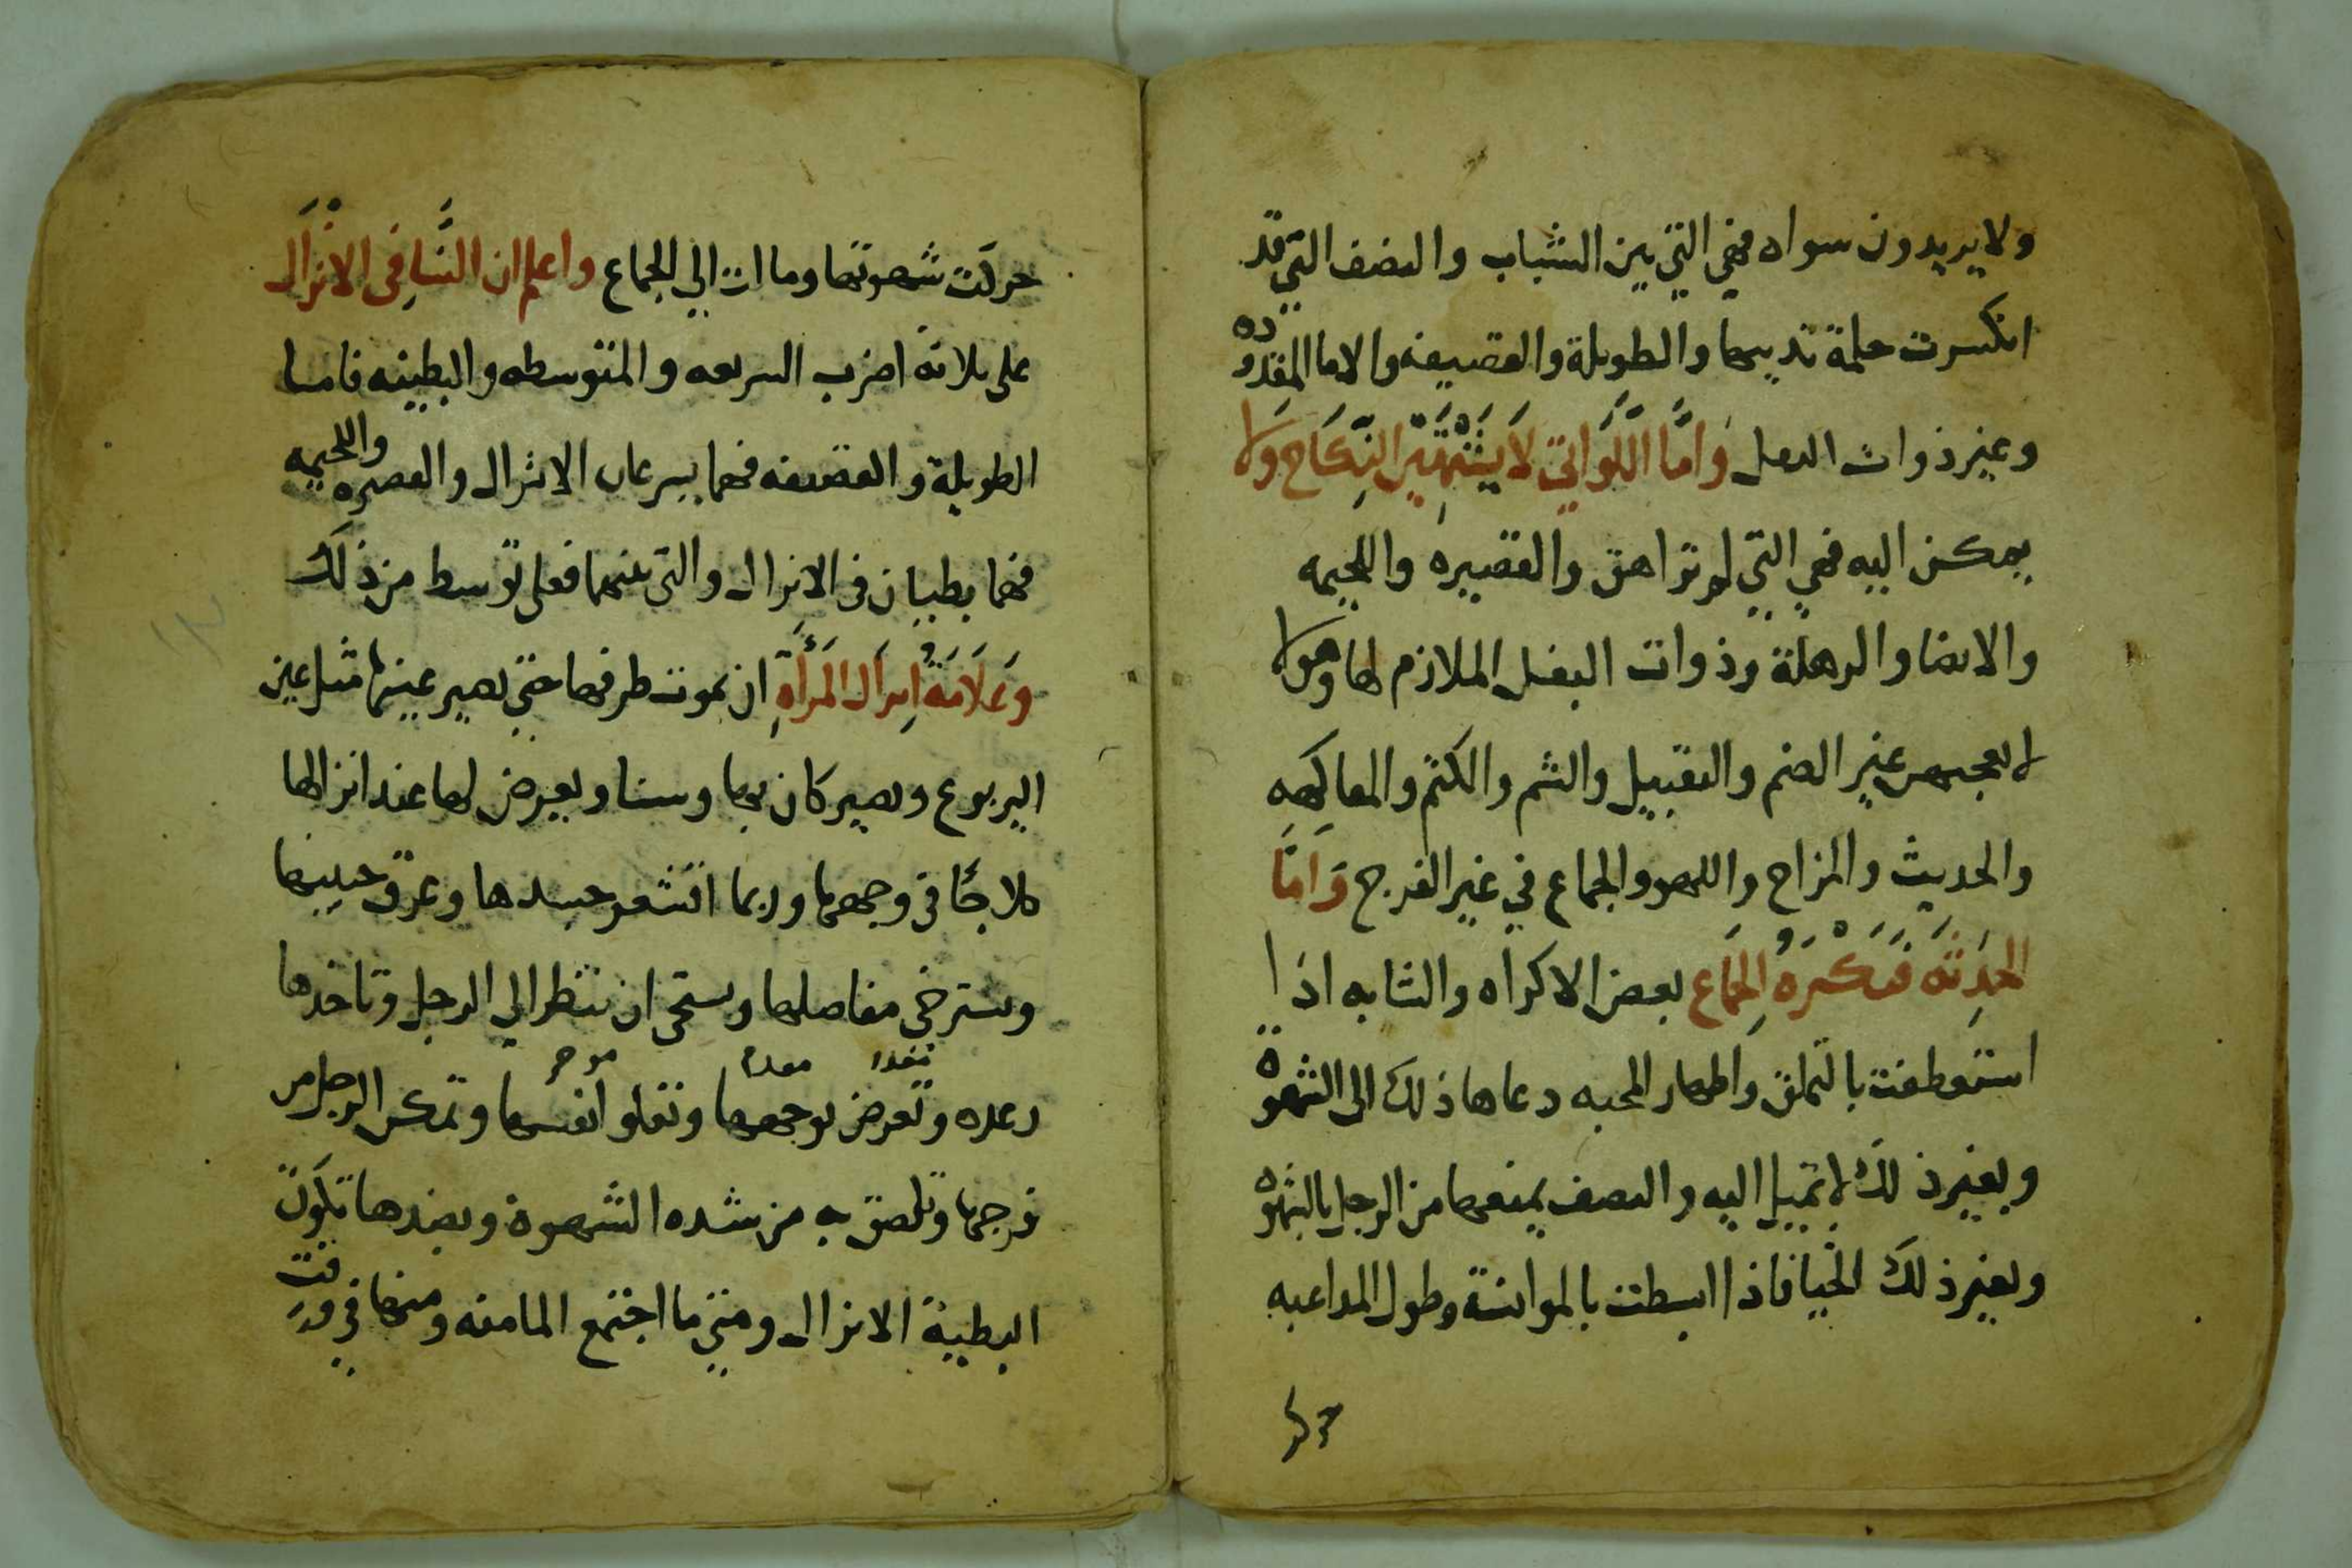 ولا يريدون سواه فهي التي بين الشباب والنصف التي قد
انكسرت حلمة ثدييها والطويلة والقضيفه والاما المفقدوده
وغير ذوات البعل وَامَّا اللَّوَاتي لاَ يَشْتَهِيْنَ النِّكَاح وَلا
يمكن اليه فهي التي لم تراهق والقصيره واللحيمه
والايضا والرهلة وذوات البعل الملازم لها وهولا
لا يعجبهن غير الضم والتقبيل والشم والكتم والمفاكهه
والحديث والمزاح واللهو والجماع في غير الفرج وَامَّا
الحَدِثَه فَتَكْرَهُ الجَمَاع بعض الاكراه والشابه اذا
استعطفت بالتملق واظهار المحبه دعاها ذلك الى الشهوة
وبغير ذلك لا تميل اليه والنصف يمنعها من الرجل بالشهوه
وبغير ذلك الحيا فاذا انبسطت بالموانسة وطول المداعبه
حركت
حركت شهوتها وماات الي الجماع واعلم ان النَّسا فِى الانْزَال
على ثلاثة اضرب السريعه والمتوسطه والبطيئه فاما
الطويلة والقضيفه فهما يسرعان الانزال والقصيره واللحيمه
فهما بطيان في الانزال والتي بينهما فعلى توسط من ذلك
وَعَلاَمَةُ اِنزال المَرأَةِ ان يموت طرفها حتي تصير عينها مثل عين
اليربوع وتصير كان بها وسنا ويعرض لها عند انزالها
كلاجًا في وجهها وربما اقشعر جسدها وعرق جبينها
وتسترخي مفاصلها وتستحى ان تنظر الي الرجل وتاخذها
رعده وتعرض بوجهها وتعلو انفسها وتمكن الرجل من
فرجها وتلصق به من شده الشهوة وبضدها تكون
البطيئة الانزال ومتي ما اجتمع الما منه ومنها في وقت